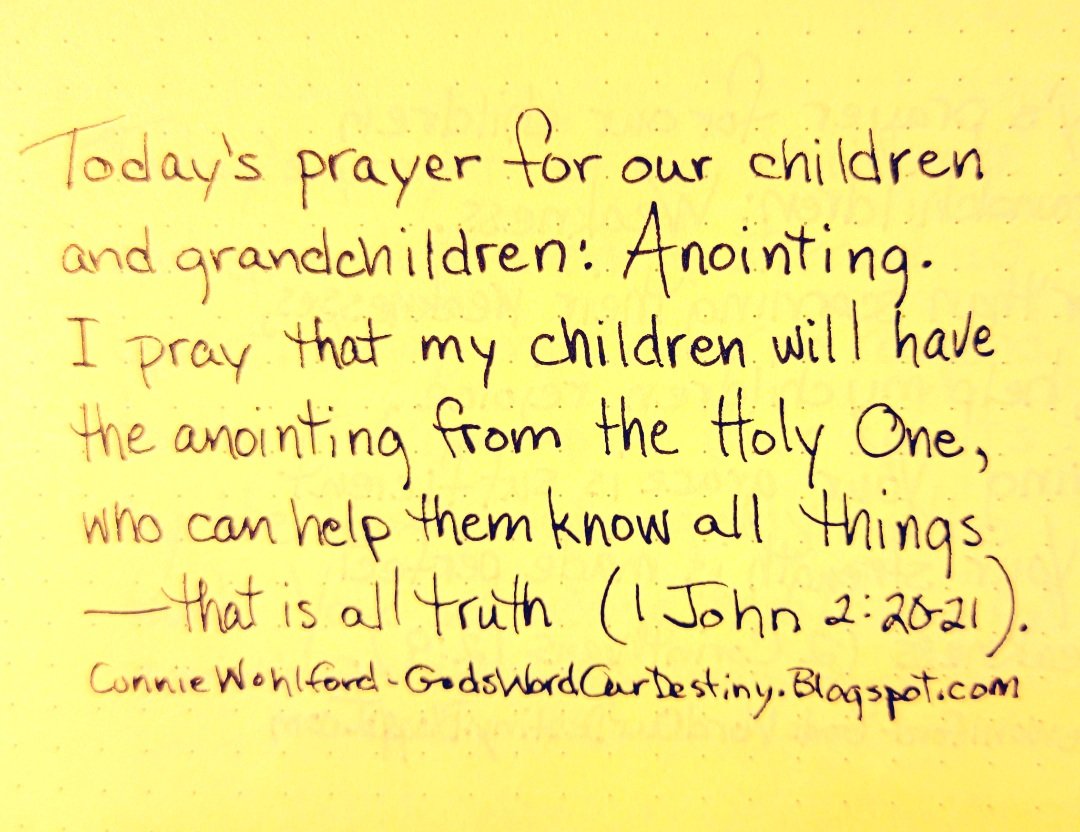 Today's prayer for our children
and grandchildren: Anointing.
I pray that my children will have
the anointing from the Holy One,
who can help them know all things
—that is all truth (1 John 2:20-21).
Connie Wohlford-GodsWordOurDestiny.Blogspot.com